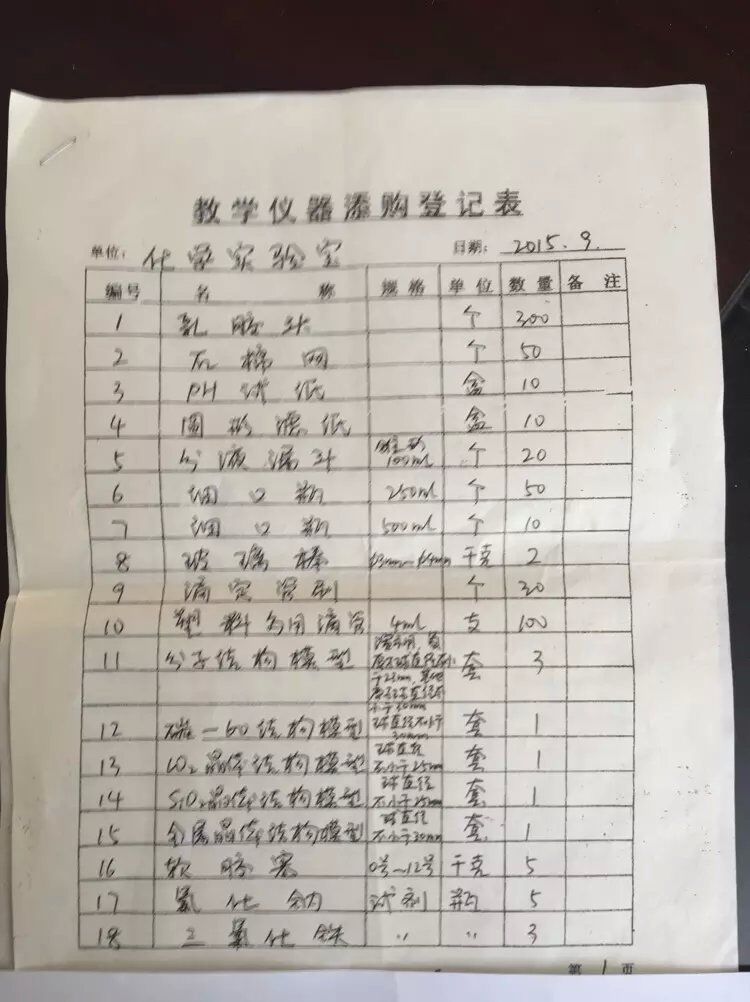 教学仪器添购登记表
单位: 化学实验室 日期: 2015.9.
编号 名称 规格 单位 数量 备注
1 乳胶头 个 300
2 石棉网 个 50
3 PH试纸 盒 10
4 圆形滤纸 盒 10
5 分液漏斗 锥形 100ml 个 20
6 细口瓶 250ml 个 50
7 细口瓶 500ml 个 10
8 玻璃棒 φ3mm~φ4mm 千克 2
9 滴定管刷 个 30
10 塑料多用滴管 4ml 支 100
11 分子结构模型 套 3
12 碳-60结构模型 球直径不小于30mm 套 1
13 CO2晶体结构模型 球直径不小于25mm 套 1
14 SiO2晶体结构模型 球直径不小于25mm 套 1
15 金属晶体结构模型 球直径不小于30mm 套 1
16 软胶塞 0号~12号 千克 5
17 氯化钠 试剂 瓶 5
18 三氯化铁 〃 〃 3
第 1 页